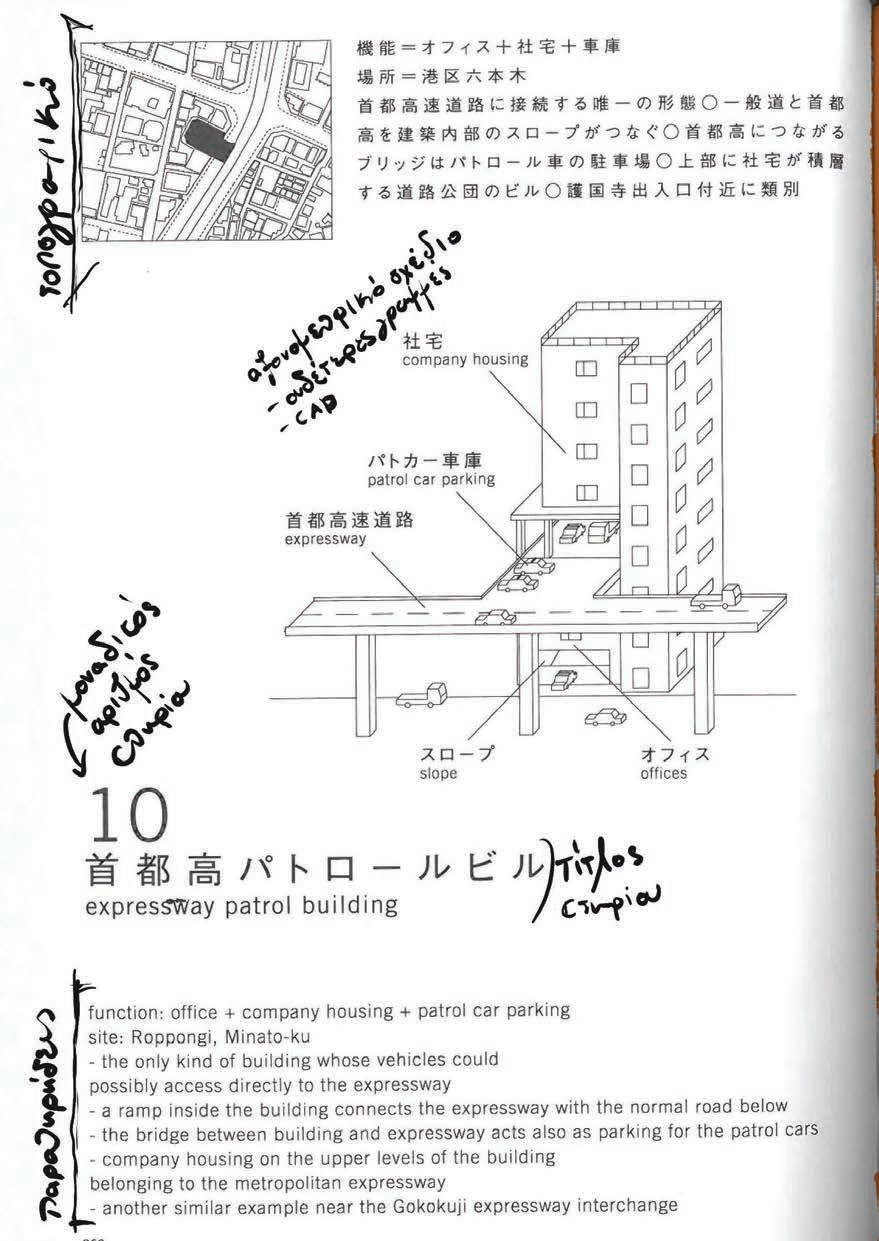 τοπογραφικό
機能＝オフィス＋社宅＋車庫
場所＝港区六本木
首都高速道路に接続する唯一の形態〇一般道と首都
高を建築内部のスロープがつなぐ〇首都高につながる
ブリッジはパトロール車の駐車場〇上部に社宅が積層
する道路公団のビル〇護国寺出入口付近に類別
αξονομετρικό σχέδιο
- ουδέτερες γραμμές
- CAD
社宅
company housing
パトカー車庫
patrol car parking
首都高速道路
expressway
スロープ
slope
オフィス
offices
μοναδικός
αριθμός
κτηρίου
10
首都高パトロールビル
expressway patrol building
τίτλος
κτηρίου
παρατηρήσεις
function: office + company housing + patrol car parking
site: Roppongi, Minato-ku
- the only kind of building whose vehicles could
possibly access directly to the expressway
- a ramp inside the building connects the expressway with the normal road below
- the bridge between building and expressway acts also as parking for the patrol cars
- company housing on the upper levels of the building
belonging to the metropolitan expressway
- another similar example near the Gokokuji expressway interchange